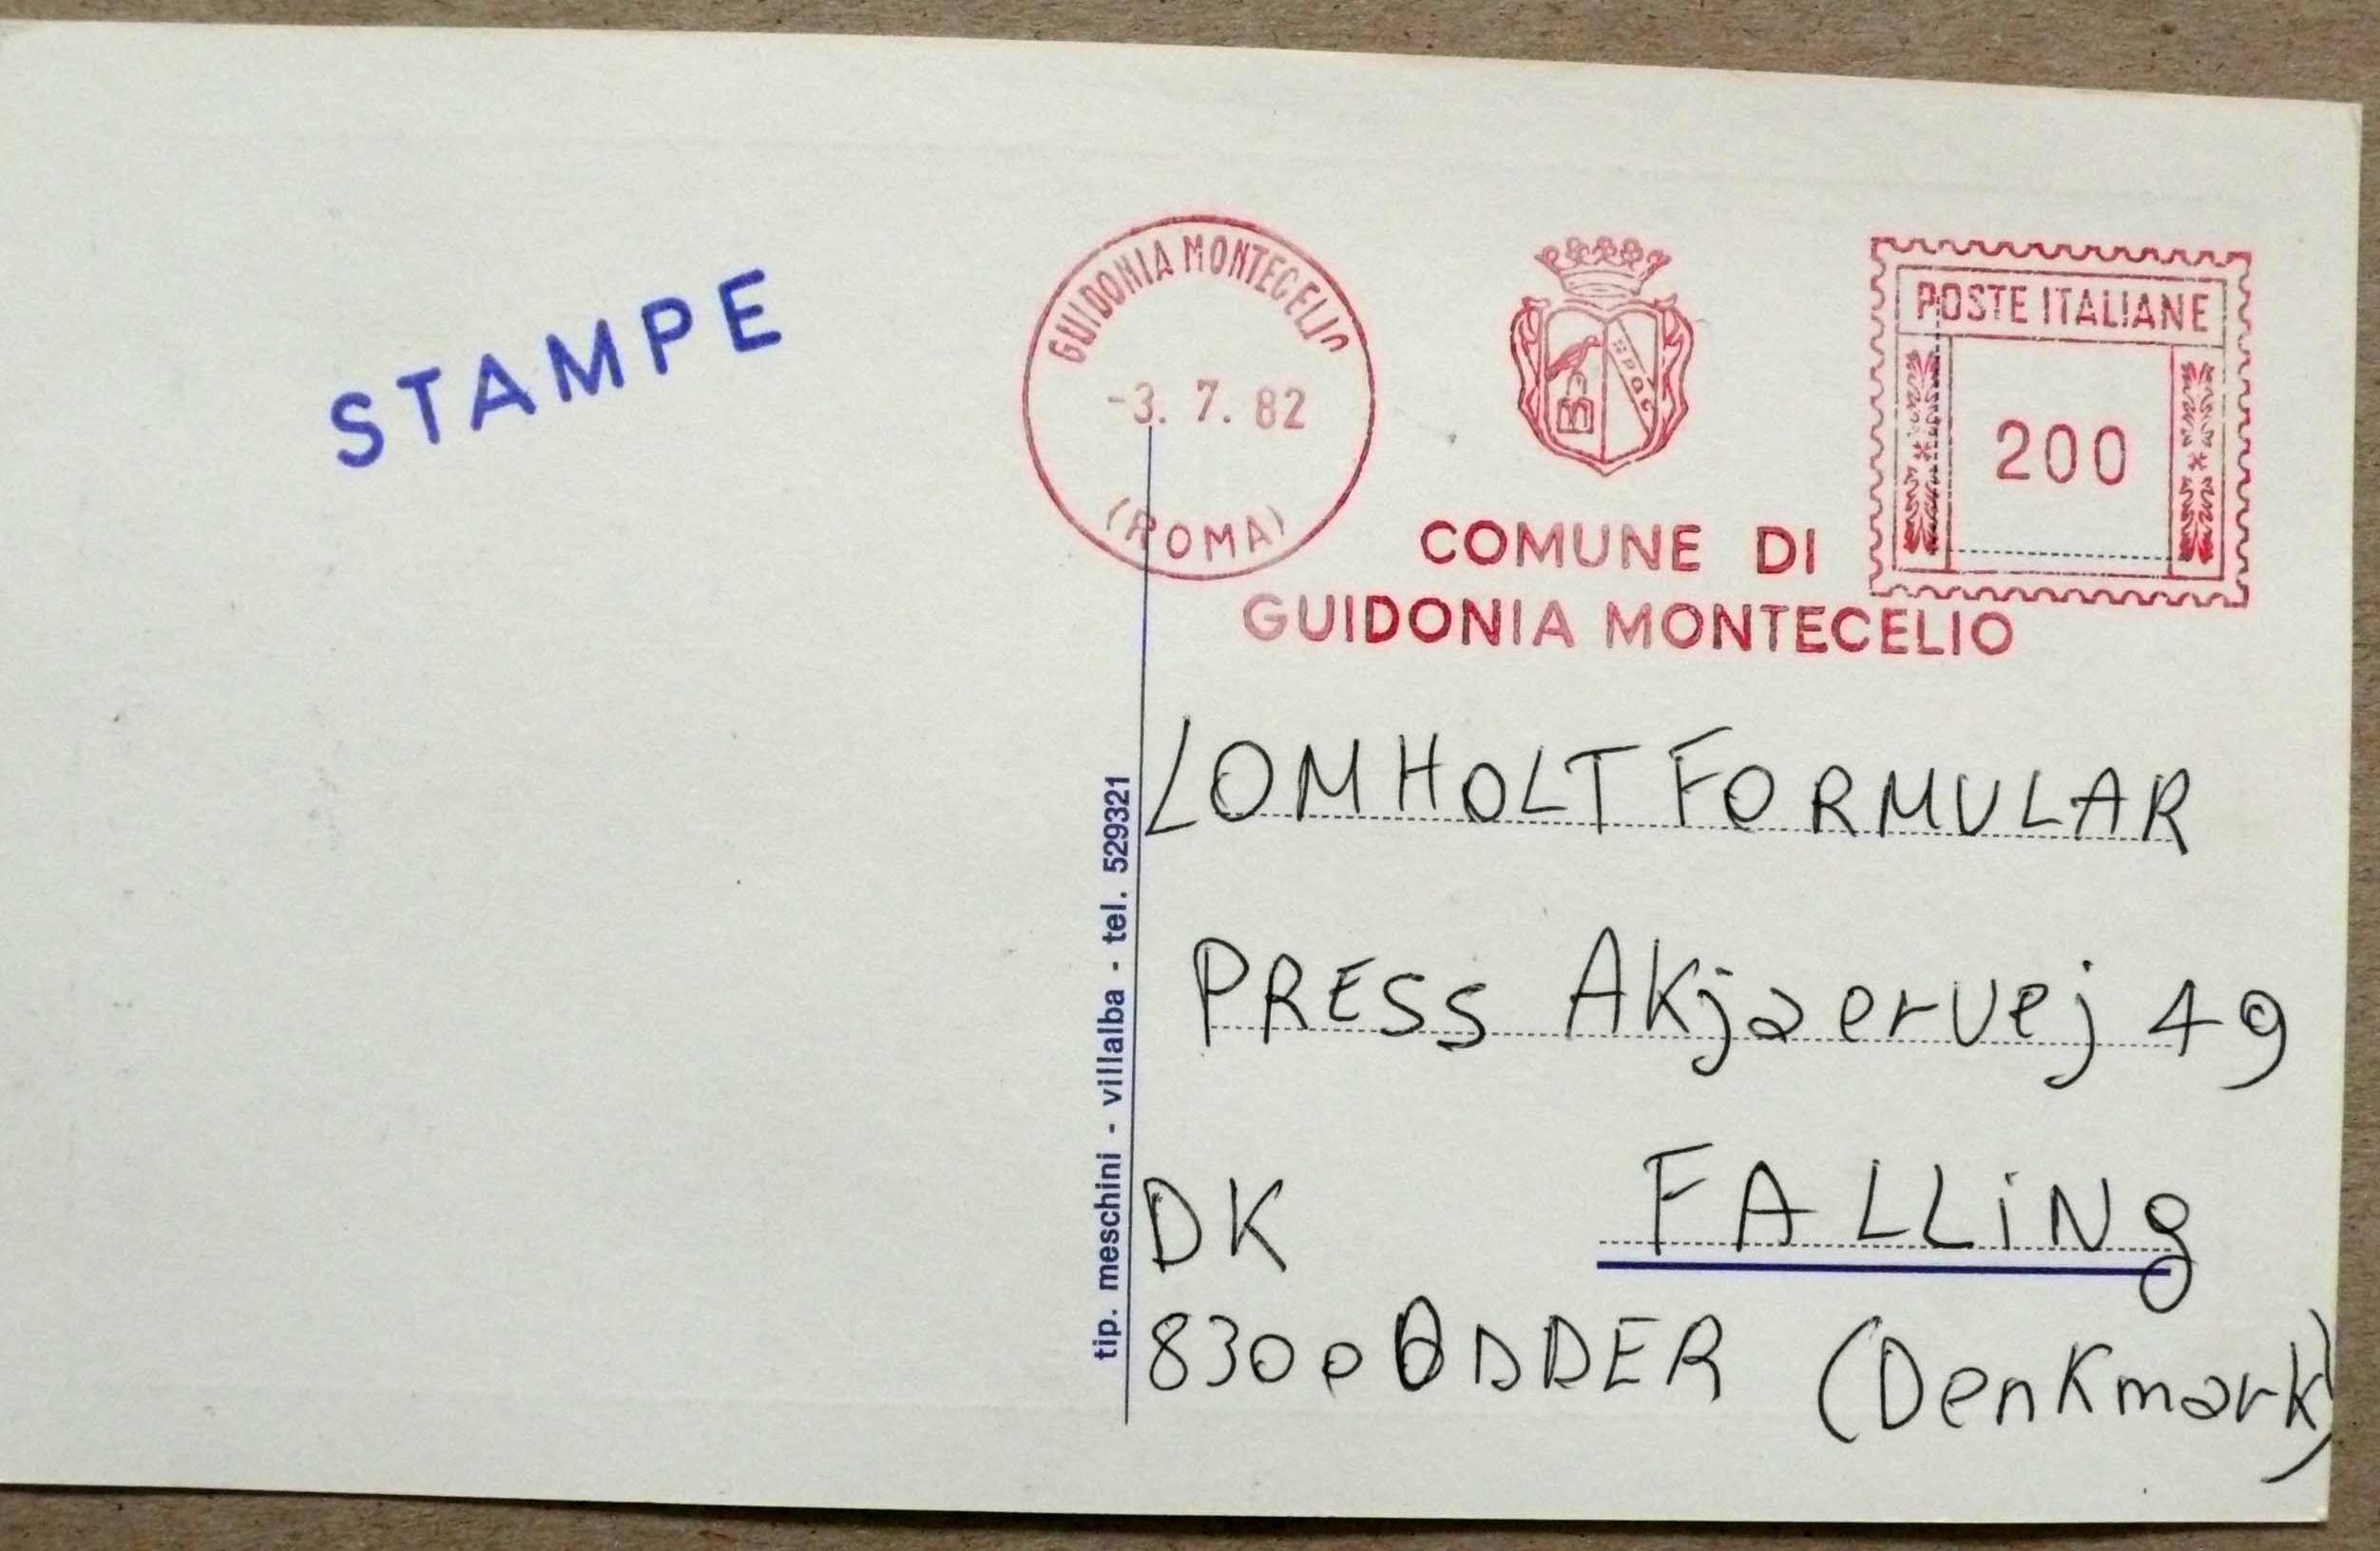 STAMPE
GUIDONIA MONTECELIO
-3. 7. 82
(ROMA)
POSTE ITALIANE
200
COMUNE DI
GUIDONIA MONTECELIO
tip. meschini - villalba - tel. 529321
LOMHOLT FORMULAR
PRESS Akjaervej 49
DK FALLiNg
8300 ODDER (Denkmark)